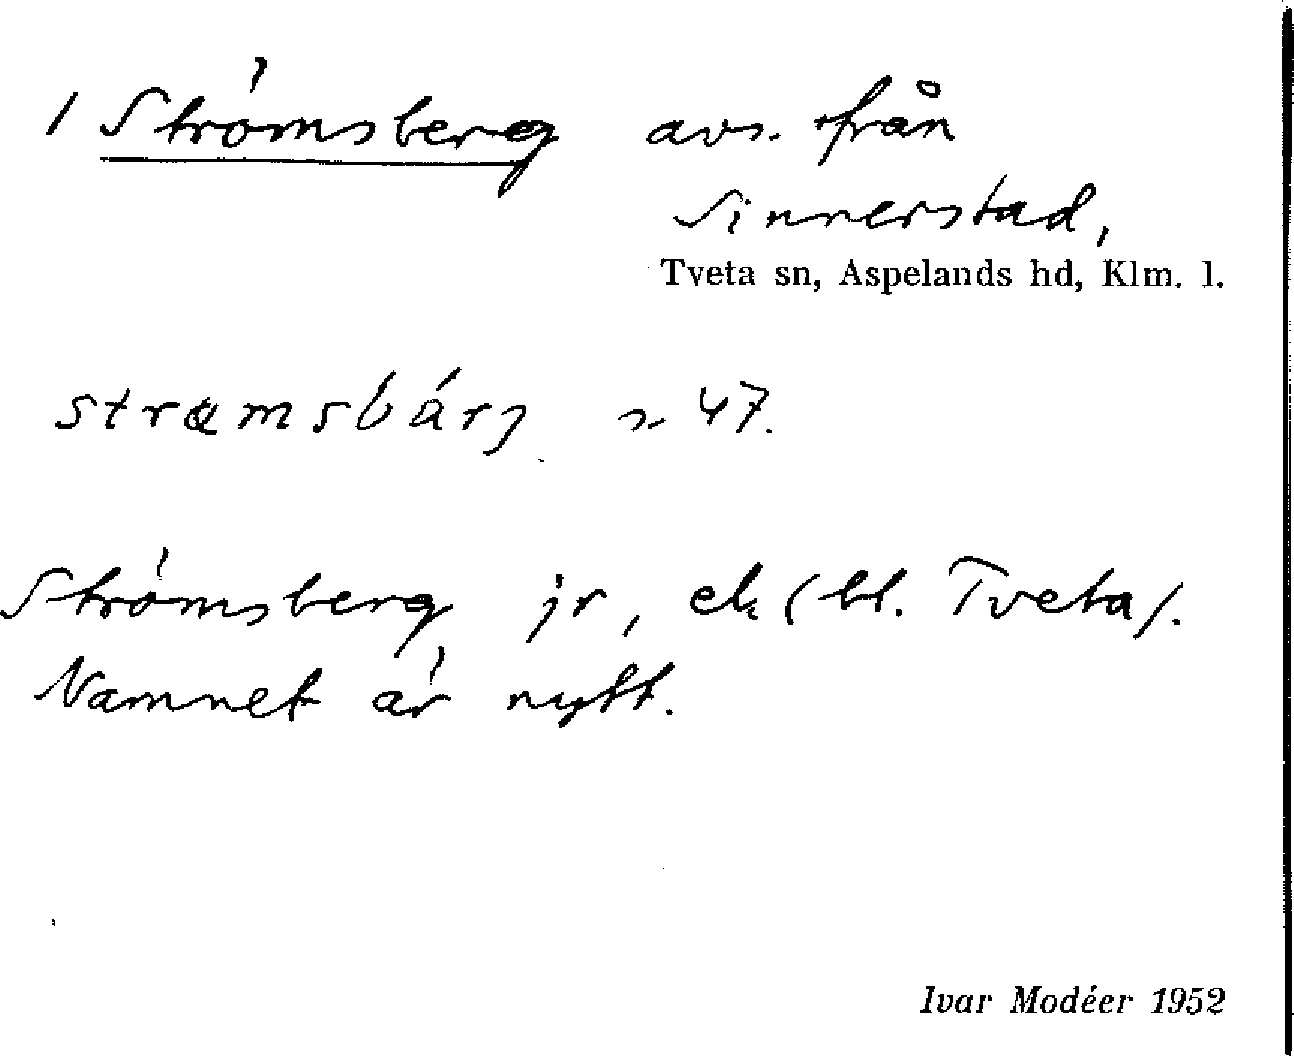 1 Strömsberg avs. från
Sinnerstad,
Tveta sn, Aspelands hd, Klm. l.
47.
Strömsberg jr, ek (bl. Tveta).
Namnet är nytt.
Ivar Modéer 1952